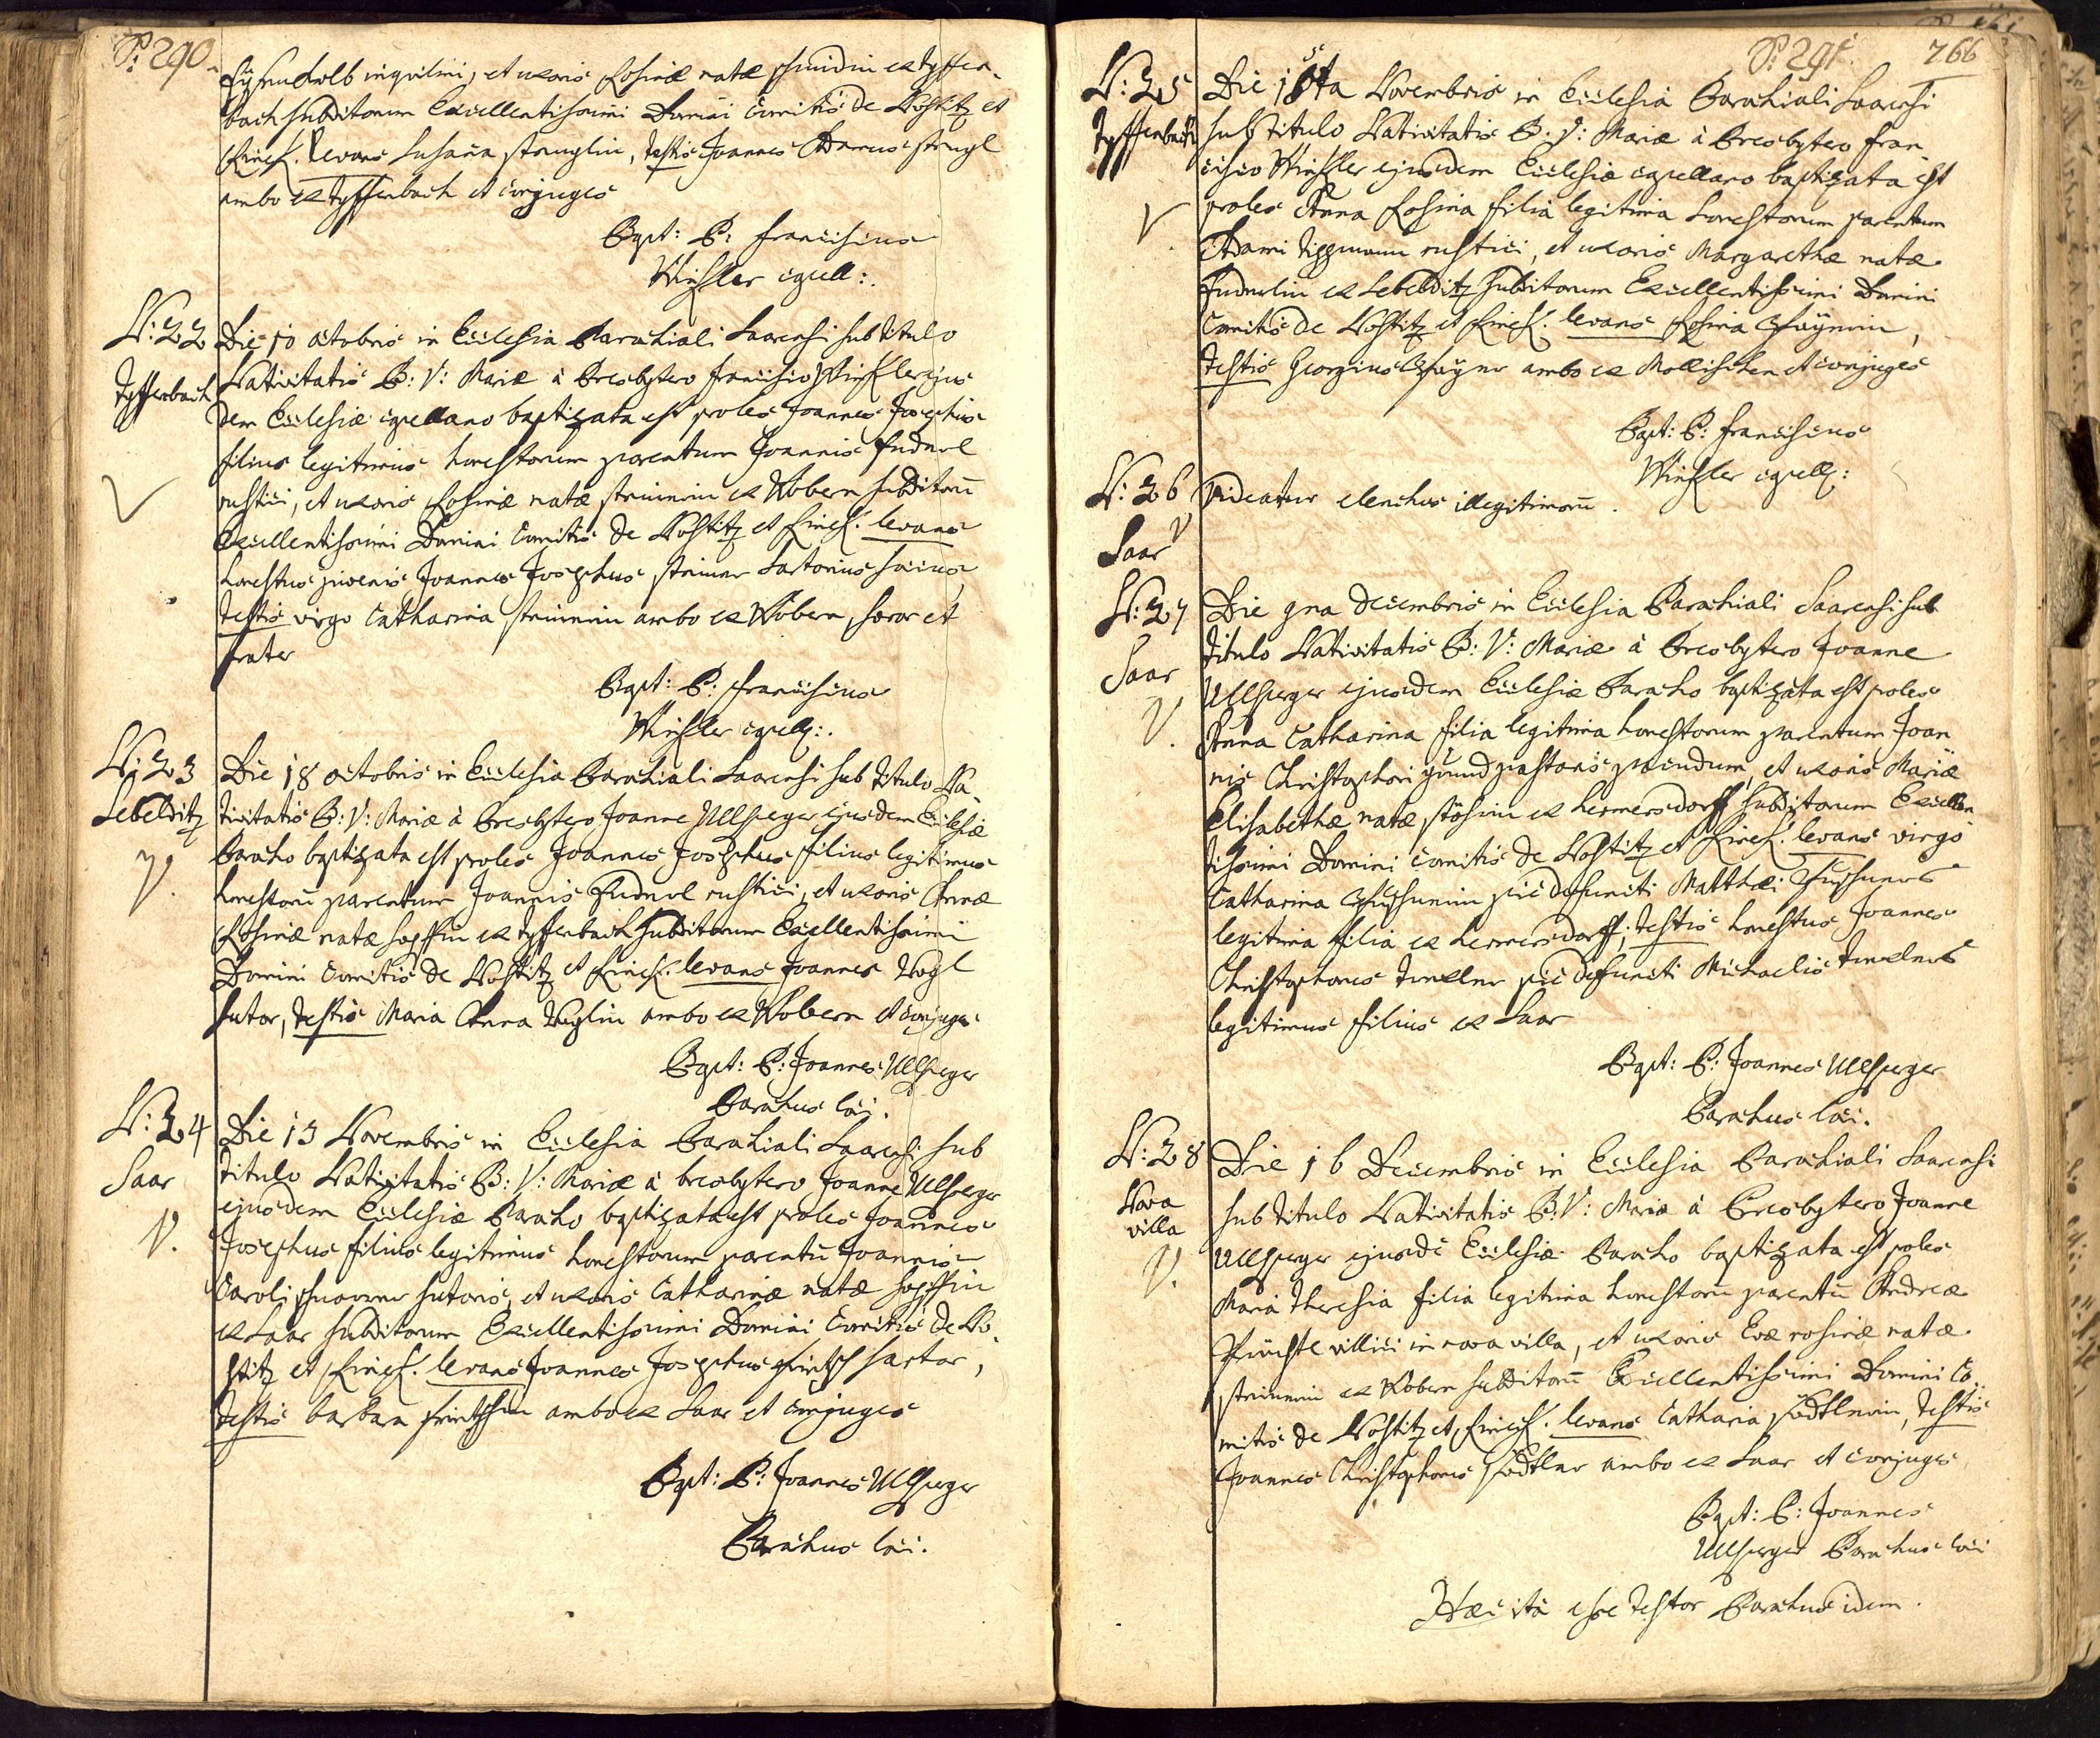 P: 290.
inquilini, et uxoris Rosinæ natæ ex Tyffen-
bach subditorum Excellentissimi Domini Comitis de Nostitz et
Rinek. levans Susaña, testis Joannes
ambo ex Tyffenbach et conjuges
Bapt: P: Franciscus
Winkler capell:.
N: 22 Die 10 octobris in Ecclesia Parochiali Saarensi sub titulo
Tyffenbach Nativitatis B: V: Mariæ à Presbytero Francisco Winkler ejus
dem Ecclesiæ capellano baptizata est proles Joannes Josephus
filius legitimus honestorum parentum Joannis
rustici, et uxoris Rosinæ natæ ex Wobern subditorũ
V Excellentissimi Domini Comitis de Nostitz et Rinek. levans
honestus juvenis Joannes Josephus Sartorius socius,
testis virgo Catharina ambo ex Wobern, soror et
frater
Bapt: P: Franciscus
Winkler capell:.
N: 23 Die 18 octobris in Ecclesia Parochiali Saarensi sub titulo Na-
Lebelditz tivitatis B: V: Mariæ à Presbytero Joanne Ullsperger ejusdem Ecclesiæ
Parocho baptizata est proles Joannes Josephus filius legitimus
V. honestorũ parentum Joannis rustici, et uxoris Annæ
Rosinæ natæ ex Tyffenbach subditorum Excellentissimi
Domini Comitis de Nostitz et Rinek. levans Joannes Vogl
sutor, testis Maria Anna Voglin ambo ex Wobern et conjuges
Bapt: P: Joannes Ullsperger
Parochus loci.
N: 24 Die 13 Novembris in Ecclesia Parochiali Saarensi sub
Saar titulo Nativitatis B: V: Mariæ à Presbytero Joanne Ullsperger
V. ejusdem Ecclesiæ Parocho baptizata est proles Joannes
Josephus filius legitimus honestorum parentũ Joannis
Caroli sutoris, et uxoris Catharinæ natæ
ex Saar subditorum Excellentissimi Domini Comitis de No-
stitz et Rinek. levans Joannes Josephus sartor,
testis Barbara ambo ex Saar et conjuges
Bapt: P: Joannes Ullsperger
Parochus loci.
P: 291. 766
N: 25 Die Novembris in Ecclesia Parochiali Saarensi
Tyffenbach sub titulo Nativitatis B: V: Mariæ à Presbytero Fran
cisco Winkler ejusdem Ecclesiæ capellano baptizata est
V proles Anna Rosina filia legitima honestorum parentum
Adami Tippmann rustici, et uxoris Margarethæ natæ
ex Lebelditz subditorum Excellentissimi Domini
Comitis de Nostitz et Rinek. levans Rosina,
testis Georgius ambo ex Mollischen et conjuges
Bapt: P: Franciscus
Winkler capell:
N: 26 Videatur elenchus illegitimorũ.
Saar V
N: 27 Die 9na decembris in Ecclesia Parochiali Saarensi sub
Saar titulo Nativitatis B: V: Mariæ à Presbytero Joanne
Ullsperger ejusdem Ecclesiæ Parocho baptizata est proles
V. Anna Catharina filia legitima honestorum parentum Joan
nis Christophori pastoris pecudum, et uxoris Mariæ
Elisabethæ natæ ex Hermersdorff subditorum Excellen-
tissimi Domini Comitis de Nostitz et Rinek. levans virgo
Catharina piè defuncti Matthæi
legitima filia ex Hermersdorff, testis honestus Joannes
Christophorus piè defuncti Michaelis
legitimus filius ex Saar
Bapt: P: Joannes Ullsperger
Parochus loci.
N: 28 Die 16 Decembris in Ecclesia Parochiali Saarensi
Nova sub titulo Nativitatis B: V: Mariæ à Presbytero Joanne
villa Ullsperger ejusdẽ Ecclesiæ Parocho baptizata est proles
V. Maria Theresia filia legitima honestorũ parentũ Andreæ
villici in nova villa, et uxoris Evæ rosinæ natæ
ex Wobern subditorũ Excellentissimi Domini Co-
mitis de Nostitz et Rinek. levans Catharia, testis
Joannes Christophorus ambo ex Saar et conjuges
Bapt: P: Joannes
Ullsperger Parochus loci
Hæc ità esse testor Parochus idem.